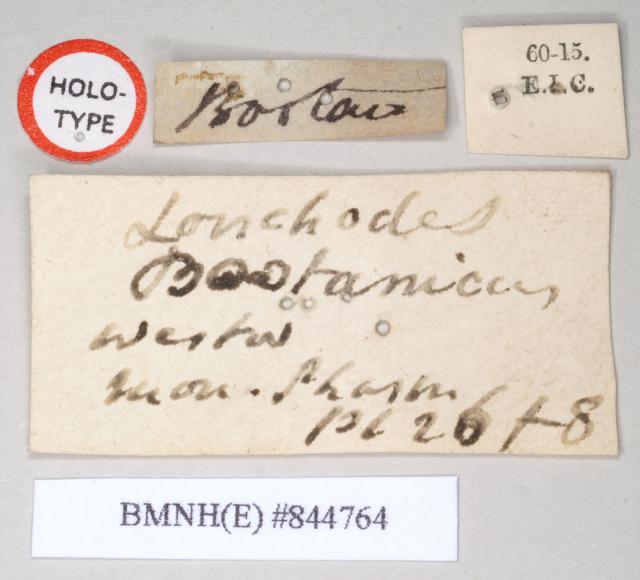 HOLO-
TYPE
Bootan
60-15.
E.I.C.
Lonchodes
Bootanicus
westw
mon. Phasm
Pl 26 f 8
BMNH(E) #844764